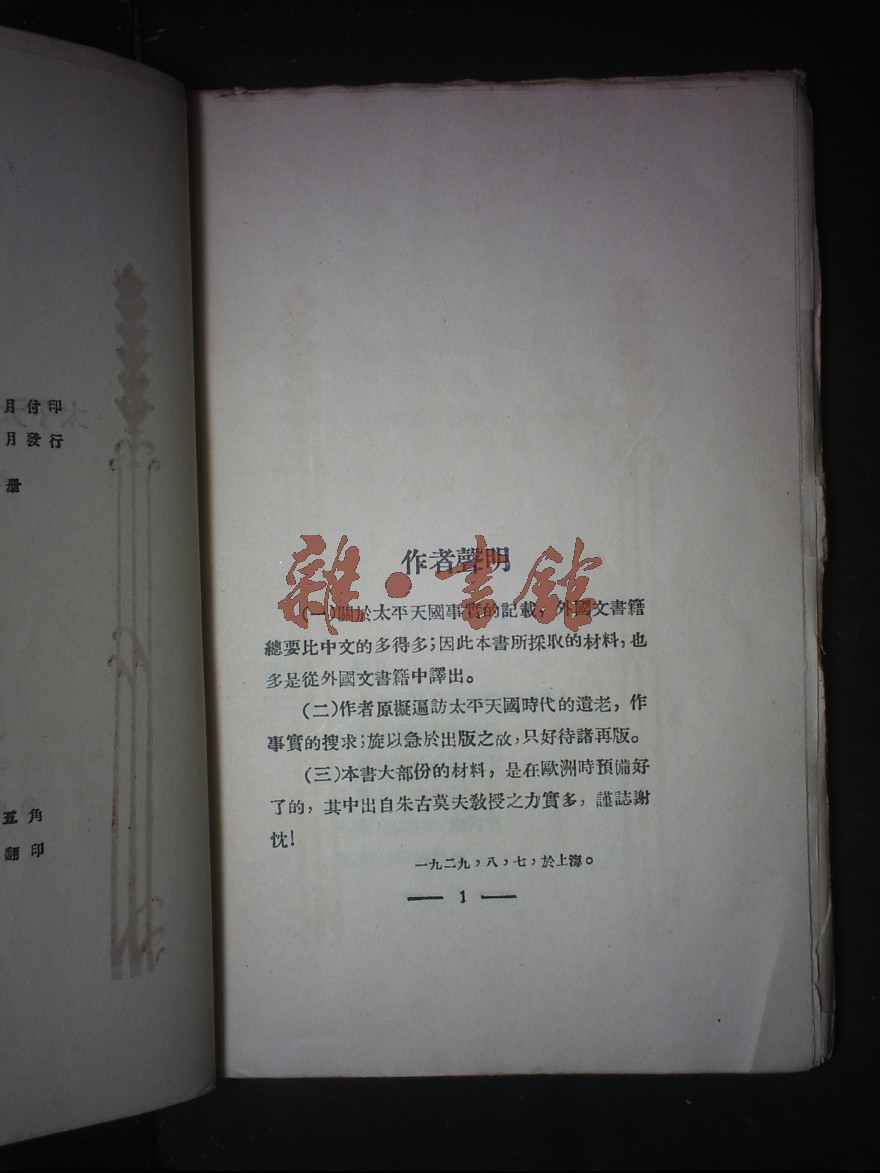 月付印
月發行
册
五角
翻印
雜·書館
作者聲明
(一)關於太平天國事實的記載,外國文書籍
總要比中文的多得多;因此本書所採取的材料,也
多是從外國文書籍中譯出。
(二)作者原擬遍訪太平天國時代的遺老,作
事實的搜求;旋以急於出版之故,只好待諸再版。
(三)本書大部份的材料,是在歐洲時預備好
了的,其中出自朱古莫夫敎授之力實多,謹誌謝
忱!
一九二九,八,七,於上海。
— 1 —